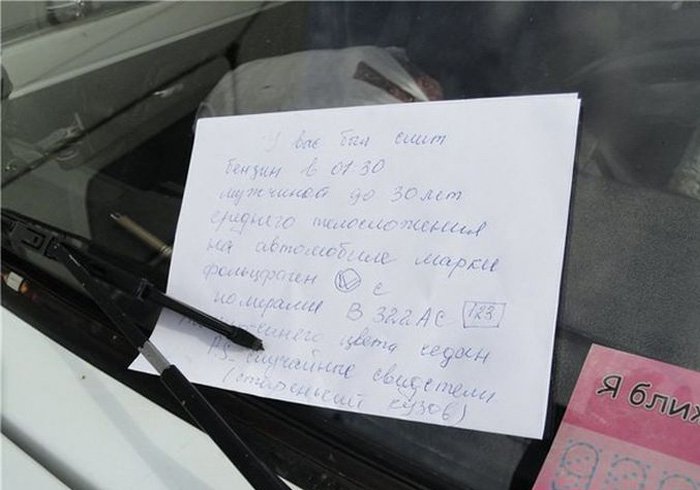 У вас был слит
бензин в 01 30
мужчиной до 30 лет
среднего телосложения
на автомобиле марки
фольцваген VW с
номерами В 322 АС 123
синего цвета седан
PS случайные свидетели
(старенький кузов)
Я ближ